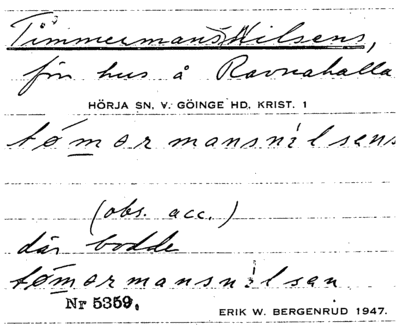 Timmermans Nilsens,
förr hus å Ravnahalla
HÖRJA SN. V. GÖINGE HD. KRIST. 1
tømərmansnilsens
(obs. acc.)
där bodde
tømərmansnilsən
Nr 5359.
ERIK W. BERGENRUD 1947.